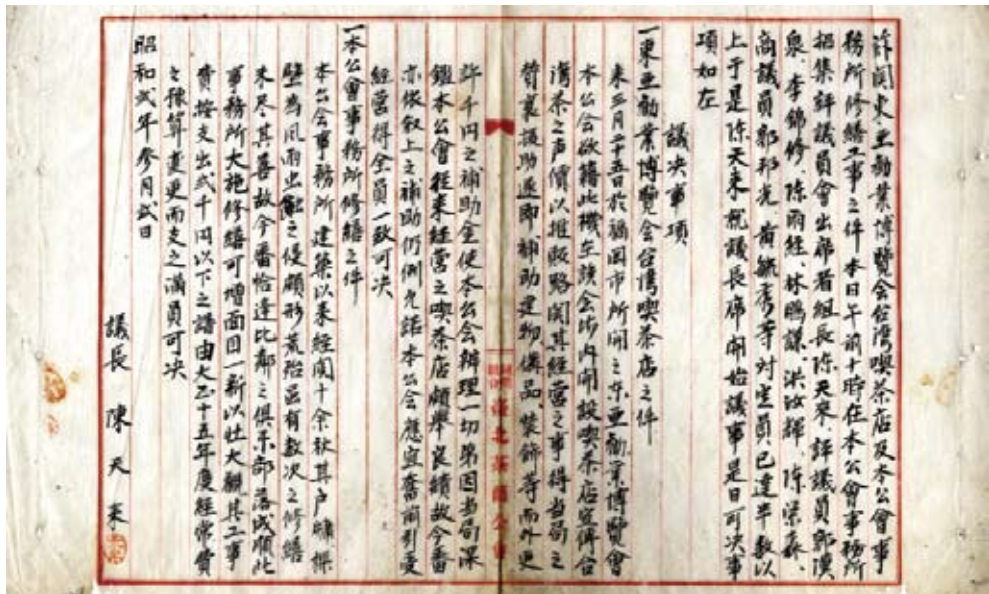 詐関東亜勧業博覧会台湾喫茶店及本公會事
務所修繕工事之件本日午前十時在本公會事務所
招集評議員會出席者組長陳天來、評議員郭漢
泉、李錦修、陳雨經、林鵬謀、洪汝輝、陳榮森、
商議員郭邦光、黃毓秀等対定員已達半数以
上于是陳天来就議長席開始議事是日可决事
項如左
議决事項
一東亜勧業博覧会台湾喫茶店之件
来三月二十五日於福岡市所開之东亜勧業博覧會
本公会欲藉此機在該会场内開設喫茶店宣伝台
湾茶之声價以推販路関其経营之事得当局之
賛襄援助並即補助建物俻品、装飾等而外更
許千円之補助金使本公会辦理一切第因当局深
鑑本公會従来経营之喫茶店頗舉良績故今番
亦依叙上之補助仍例允諾本公会應宜奮前引受
経営得全員一致可决
一本公會事務所修繕之件
本公会事務所建築以来経閲十余秋其户牖樑
壁為風雨虫蝕之侵頗形荒殆虽有数次之修繕
未尽其善故今番恰逢比鄰之俱乐部落成順此
事務所大施修繕可增面目一新以壮大観其工事
費按支出弍千円以下之譜由大正十五年度経常費
之豫算变更而支之满員可决
昭和弍年参月弍日
議長 陳天来